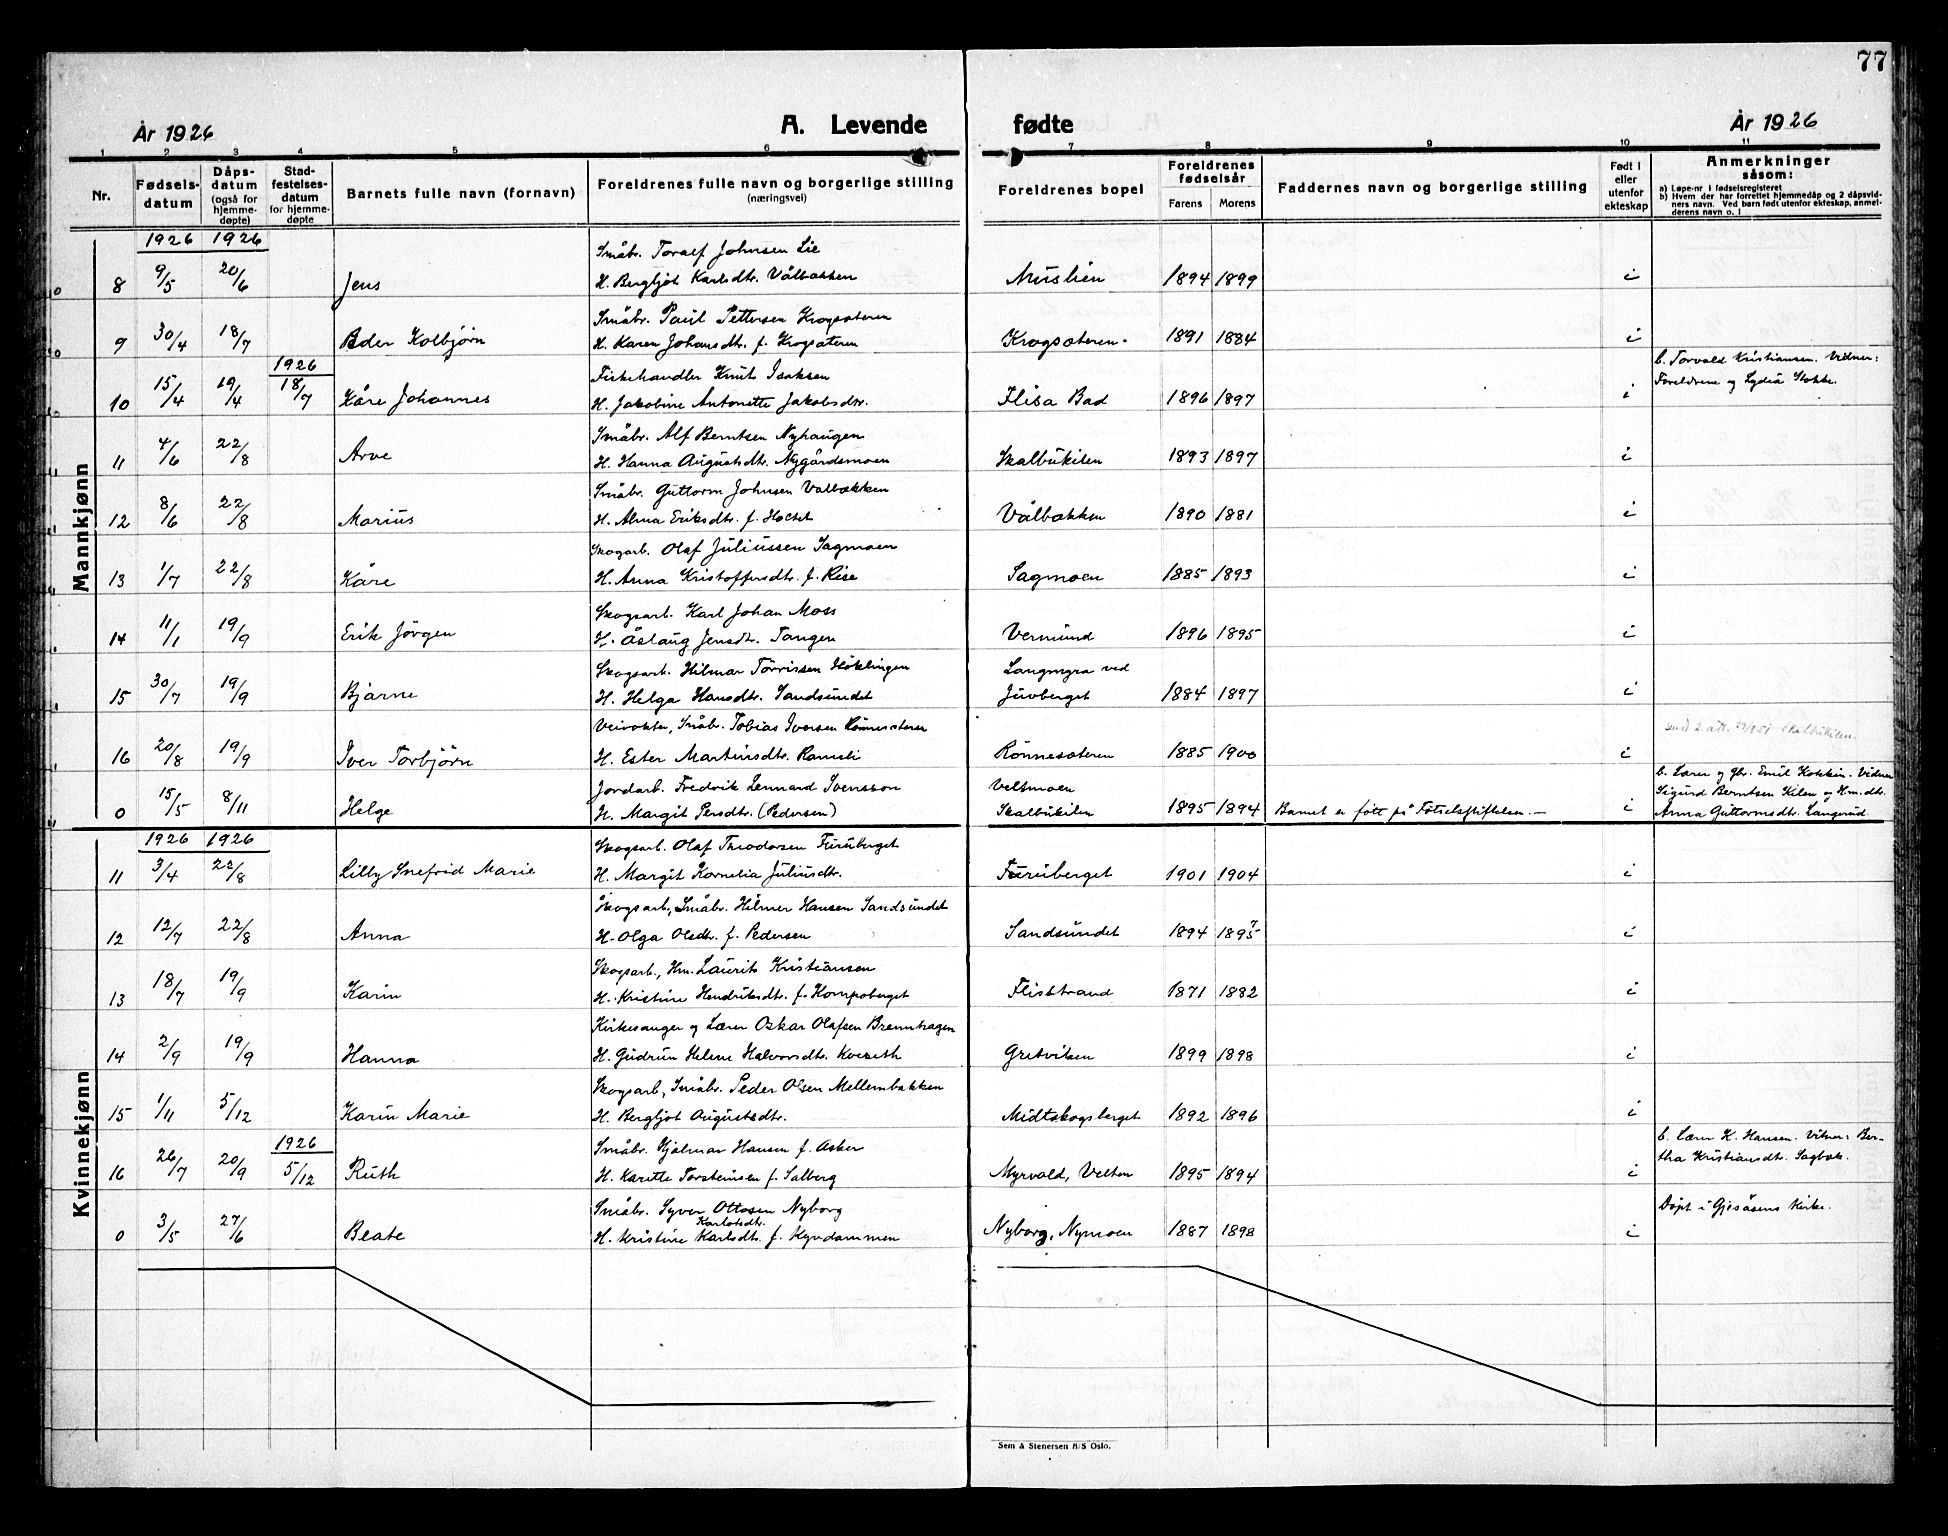 77
År 1926 A. Levende fødte År 1926
1 2 3 4 5 6 7 8 9 10 11
Nr. Fødselsdatum Dåpsdatum (også for hjemmedøpte) Stadfestelsesdatum for hjemmedøpte Barnets fulle navn (fornavn) Foreldrenes fulle navn og borgerlige stilling (næringsvei) Foreldrenes bopel Foreldrenes fødselsår Farens Morens Faddernes navn og borgerlige stilling Født i eller utenfor ekteskap Anmerkninger såsom: a) Løpe-nr i fødselsregisteret b) Hvem der har forrettet hjemmedåp og 2 dåpsvidners navn. Ved barn født utenfor ekteskap, anmelderens navn o. l
Mannkjønn
1926 1926
Småbr. Toralf Johnsen Lie
8 9/5 20/6 Jens H. Bergljot Karlsdtr. Vålbakken Muslien 1894 1899 i
Småbr. Paul Pettersen Krogsæteren
9 30/4 18/7 Peder Kolbjørn H. Karen Johansdtr. f. Krogsæteren Krogsæteren. 1891 1884 i
1926 Fiskehandler Knut Isaksen b. Torvald Kristiansen. Vidner:
10 15/4 19/4 18/7 Kåre Johannes H. Jakobine Antonette Jakobsdtr. Flisa Bad 1896 1897 i Foreldrene og Lydia Stokke.
Småbr. Alf Berntsen Nyhaugen
11 4/6 22/8 Arve H. Hanna Augustsdtr. Nygårdsmoen Skalbukilen 1893 1897 i
Småbr. Guttorm Johnsen Valbækken
12 8/6 22/8 Marius H. Alma Eriksdtr. f. Hoctet Vålbækken 1890 1881 i
Skogarb. Olaf Juliussen Sagmoen
13 1/7 22/8 Kåre H. Anna Kristoffersdtr. f. Rise Sagmoen 1885 1893 i
Skogsarb. Karl Johan Moss
14 11/1 19/9 Erik Jørgen H. Åslaug Jensdtr. Tangen Vermund 1896 1895 i
Skogsarb. Hilmar Tørrissen Höklingen Langmyra ved
15 30/7 19/9 Bjarne H. Helga Hansdtr. Sandsundet Juvberget 1884 1897 i
Veivokter, Småbr. Tobias Iversen Rønnesæteren
16 20/8 19/9 Iver Torbjørn H. Ester Martinsdtr. Ramsli Rønnesæteren 1885 1900 i
Jordarb. Fredrik Lennard Svensson Veltmoen b. Lærer og gbr. Emil Kokkin. Vidner
0 15/5 8/11 Helge H. Margit Persdtr. (Pedersen) Skalbukilen 1895 1894 Barnet er født på Fødselsstiftelsen.— i Sigurd Berntsen Kilen og Hm. dtr.
Anna Guttormsdtr. Langerud
Kvinnekjønn
1926 1926
Skogsarb. Olaf Theodorsen Furuberget
11 3/4 22/8 Lilly Snefrid Marie H. Margit Kornelia Juliusdtr. Furuberget 1901 1904 i
Skogsarb., Småbr. Hilmer Hansen Sandsundet
12 12/7 22/8 Anna H. Olga Olsdtr. f. Pedersen Sandsundet 1894 1895 i
Skogsarb., Hm. Laurits Kristiansen
13 18/7 19/9 Karin H. Kristine Hendriksdtr. f. Kompoberget Flisstrand 1871 1882 i
Kirkesanger og Lærer Oskar Olafsen Brennhagen
14 2/9 19/9 Hanna H. Gudrun Helene Halvorsdtr. Kveseth Gretvilsen 1899 1898 i
Skogsarb, Småbr. Peder Olsen Mellembakken
15 1/11 5/12 Karin Marie H. Bergljot Augustsdtr. Midtskogsberget 1892 1896 i
1926 Småbr. Hjalmar Hansen f. Asker b. Lærer K. Hansen. Vitner: Ber-
16 26/7 20/9 5/12 Ruth H. Karette Torsteinsen f. Salberg Myrvold, Velten 1895 1894 i tha Kristiansdtr. Sagbak.
Småbr. Syver Ottosen Nyborg Døpt i Gjesåsens Kirke.
Karlotdtr.
0 3/5 27/6 Beate H. Kristine Karlsdtr. f. Kyndammen Nyborg, Nymoen 1887 1898 i
Sem & Stenersen A/S Oslo.